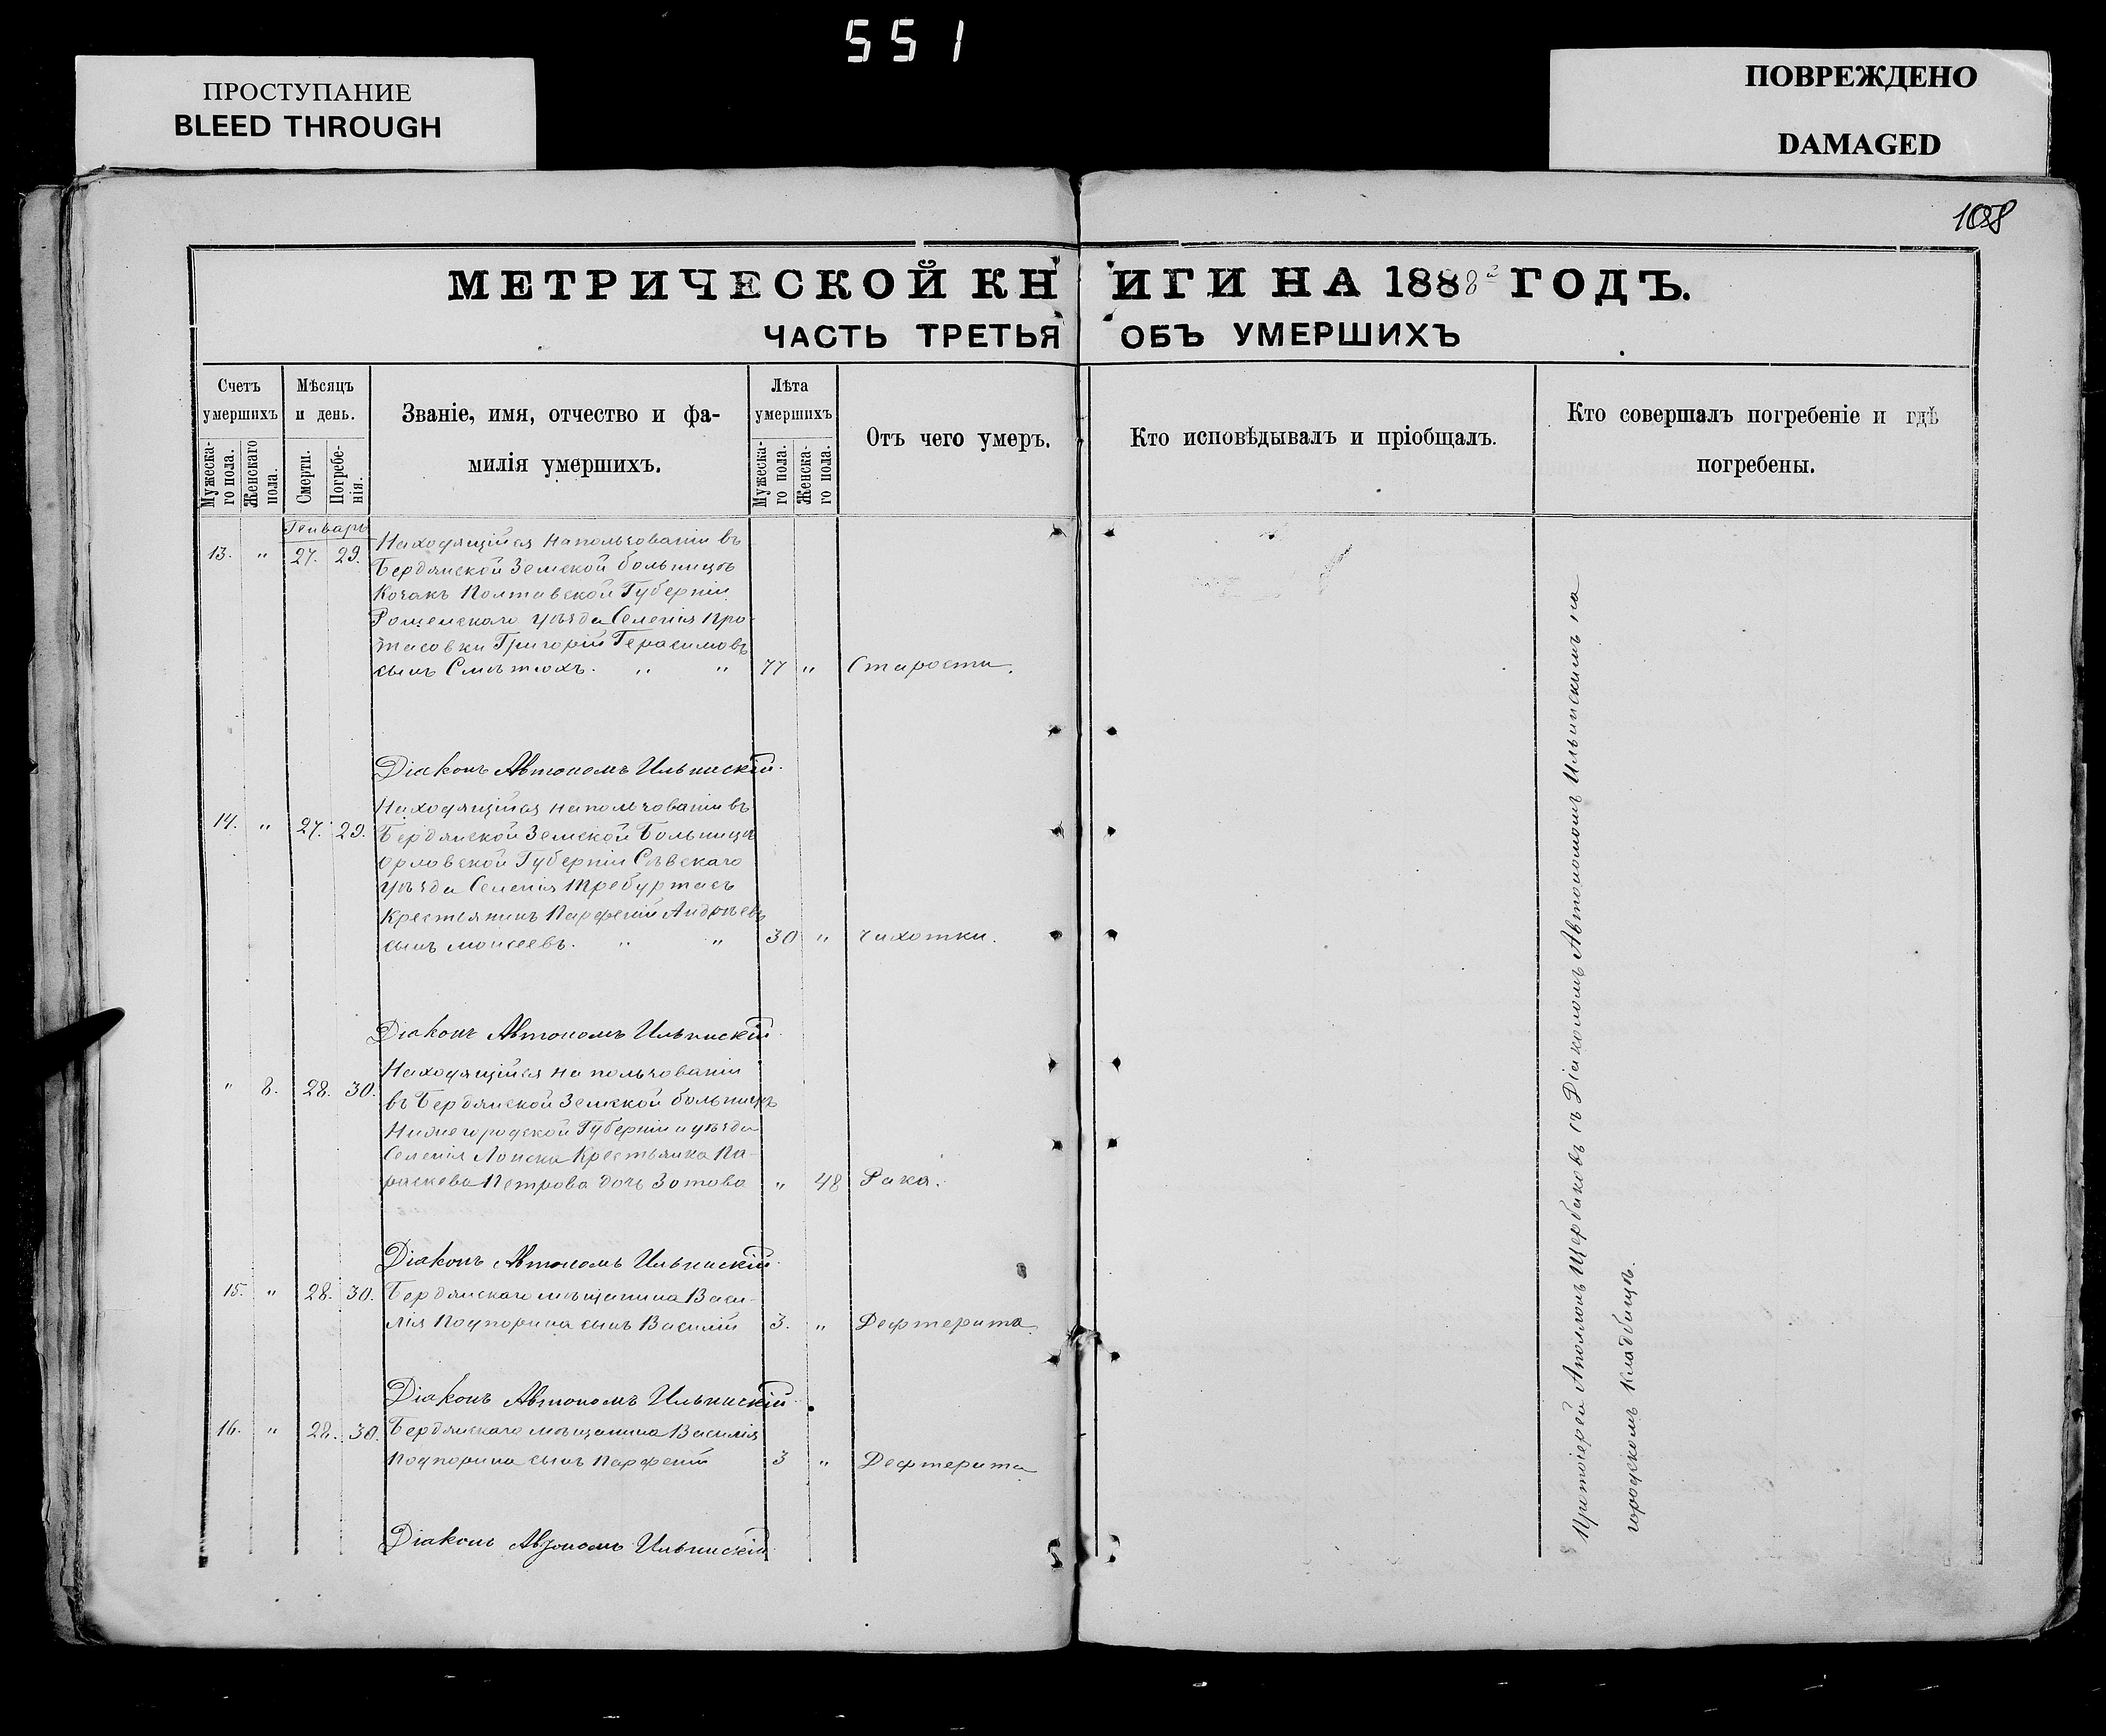 551
ПРОСТУПАНИЕ
BLEED THROUGH
ПОВРЕЖДЕНО
DAMAGED
МЕТРИЧЕСКОЙ КНИГИ НА 1888й ГОДЪ.
ЧАСТЬ ТРЕТЬЯ ОБЪ УМЕРШИХЪ
Счетъ умершихъ
Мужескаго пола.
Женскаго пола.
Мѣсяцъ и день.
Смерти.
Погребенія.
Званіе, имя, отчество и фа-
милія умершихъ.
Лѣта умершихъ
Мужескаго пола.
Женскаго пола.
Отъ чего умеръ.
Кто исповѣдывалъ и пріобщалъ.
Кто совершалъ погребеніе и гдѣ
погребены.
Генварь
13. " 27. 29. Находящійся напользованіи въ
Бердянской Земской больницѣ
Козакъ Полтавской Губерніи
уѣзда Селенія Про-
тасовки Григорій Герасимовъ
сынъ Смѣтюхъ. " " 77 " Старости.
Діаконъ Автономъ Ильинскій.
14. " 27. 29. Находящійся напользованіи въ
Бердянской Земской Больницѣ
Орловской Губерніи Сѣвскаго
уѣзда Селенія
Крестьянинъ Парфеній Андрѣевъ
сынъ Моисеевъ. " " 30 " Чихотки.
Діаконъ Автономъ Ильинскій.
" 8. 28. 30. Находящійся на пользованіи
въ Бердянской Земской больницѣ
Нижегородской Губерніи и уѣзда
Селенія Крестьянка Па-
раскева Петрова дочь Зотова " 48 Рака.
Діаконъ Автономъ Ильинскій.
15. " 28. 30. Бердянскаго мѣщанина Васи-
лія Подпорина сынъ Василій 3. " Дефтерита.
Діаконъ Автономъ Ильинскій.
16. " 28. 30. Бердянскаго мѣщанина Василія
Подпорина сынъ Парфеній 3 " Дефтерита
Діаконъ Автономъ Ильинскій.
Протоіерей Аполлонъ Щербаковъ съ Діакономъ Автономомъ Ильинскимъ на
городскомъ кладбищѣ.